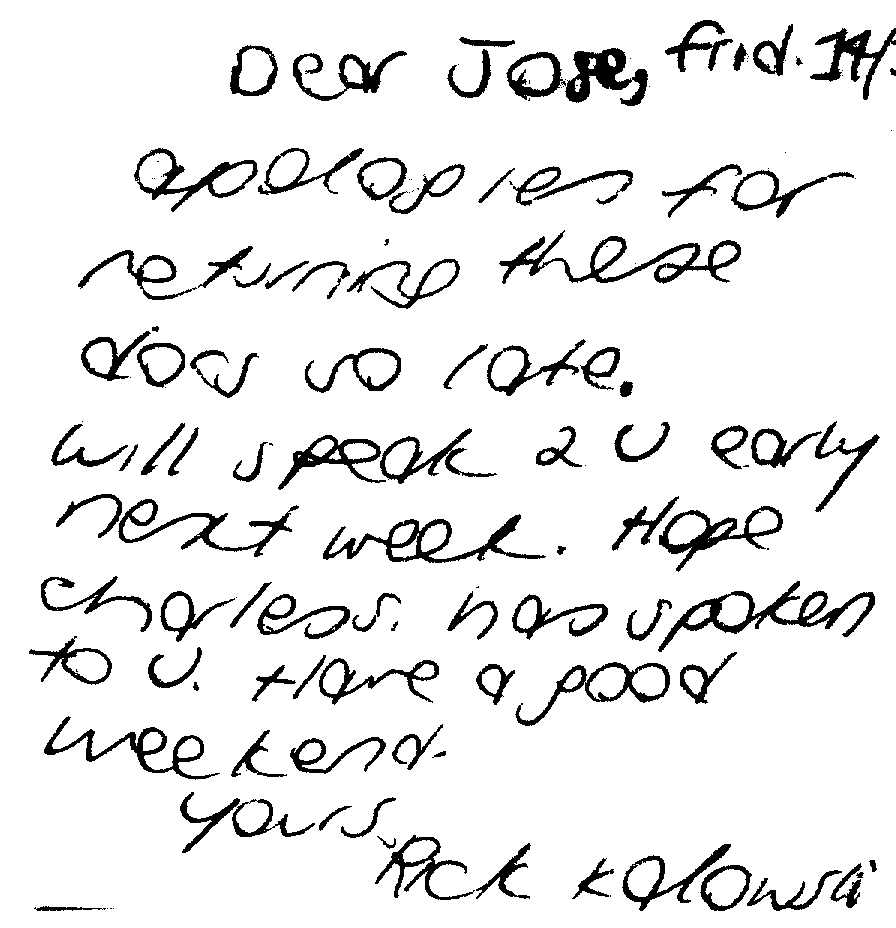 Dear Jose, Frid. 14/
apologies for
returning these
docs so late.
Will speak 2 U early
next week. Hope
Charles S. has spoken
to U. Have a good
weekend.
Yours,
Rick Kalowski